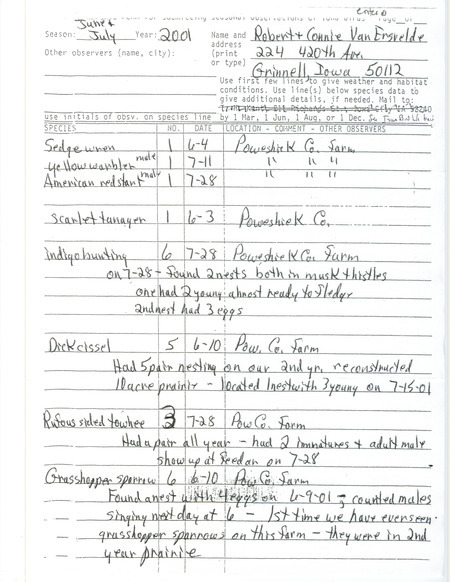 entered
form for submitting seasonal observations of Iowa birds Page of
June &
Season: July Year: 2001 Name and Robert & Connie Van Ersvelde
Other observers (name, city): address
(print 224 420th Ave.
or type)
Grinnell, Iowa 50112
Use first few lines to give weather and habitat
conditions. Use line(s) below species data to
give additional details, if needed. Mail to:
use initials of obsv. on species line by 1 Mar, 1 Jun, 1 Aug, or 1 Dec.
SPECIES NO. DATE LOCATION - COMMENT - OTHER OBSERVERS
Sedge wren 1 6-4 Poweshiek Co. farm
yellow warbler male 1 7-11 " " "
American redstart male 1 7-28 " "
Scarlet tanager 1 6-3 Poweshiek Co.
Indigo bunting 6 7-28 Poweshiek Co. farm
on 7-28 - found 2 nests both in musk thistles
one had 2 young almost ready to fledge
2nd nest had 3 eggs
Dickcissel 5 6-10 Pow. Co. farm
Had 5 pair nesting on our 2nd yr. reconstructed
10 acre prairie - located 1 nest with 3 young on 7-15-01
Rufous sided towhee 3 7-28 Pow Co. farm
Had a pair all year - had 2 immatures & adult male
show up at feed on 7-28
Grasshopper sparrow 6 6-10 Pow Co. farm
Found a nest with 4 eggs on 6-9-01 - counted males
singing next day at 6 - 1st time we have ever seen
grasshopper sparrows on this farm - they were in 2nd
year prairie